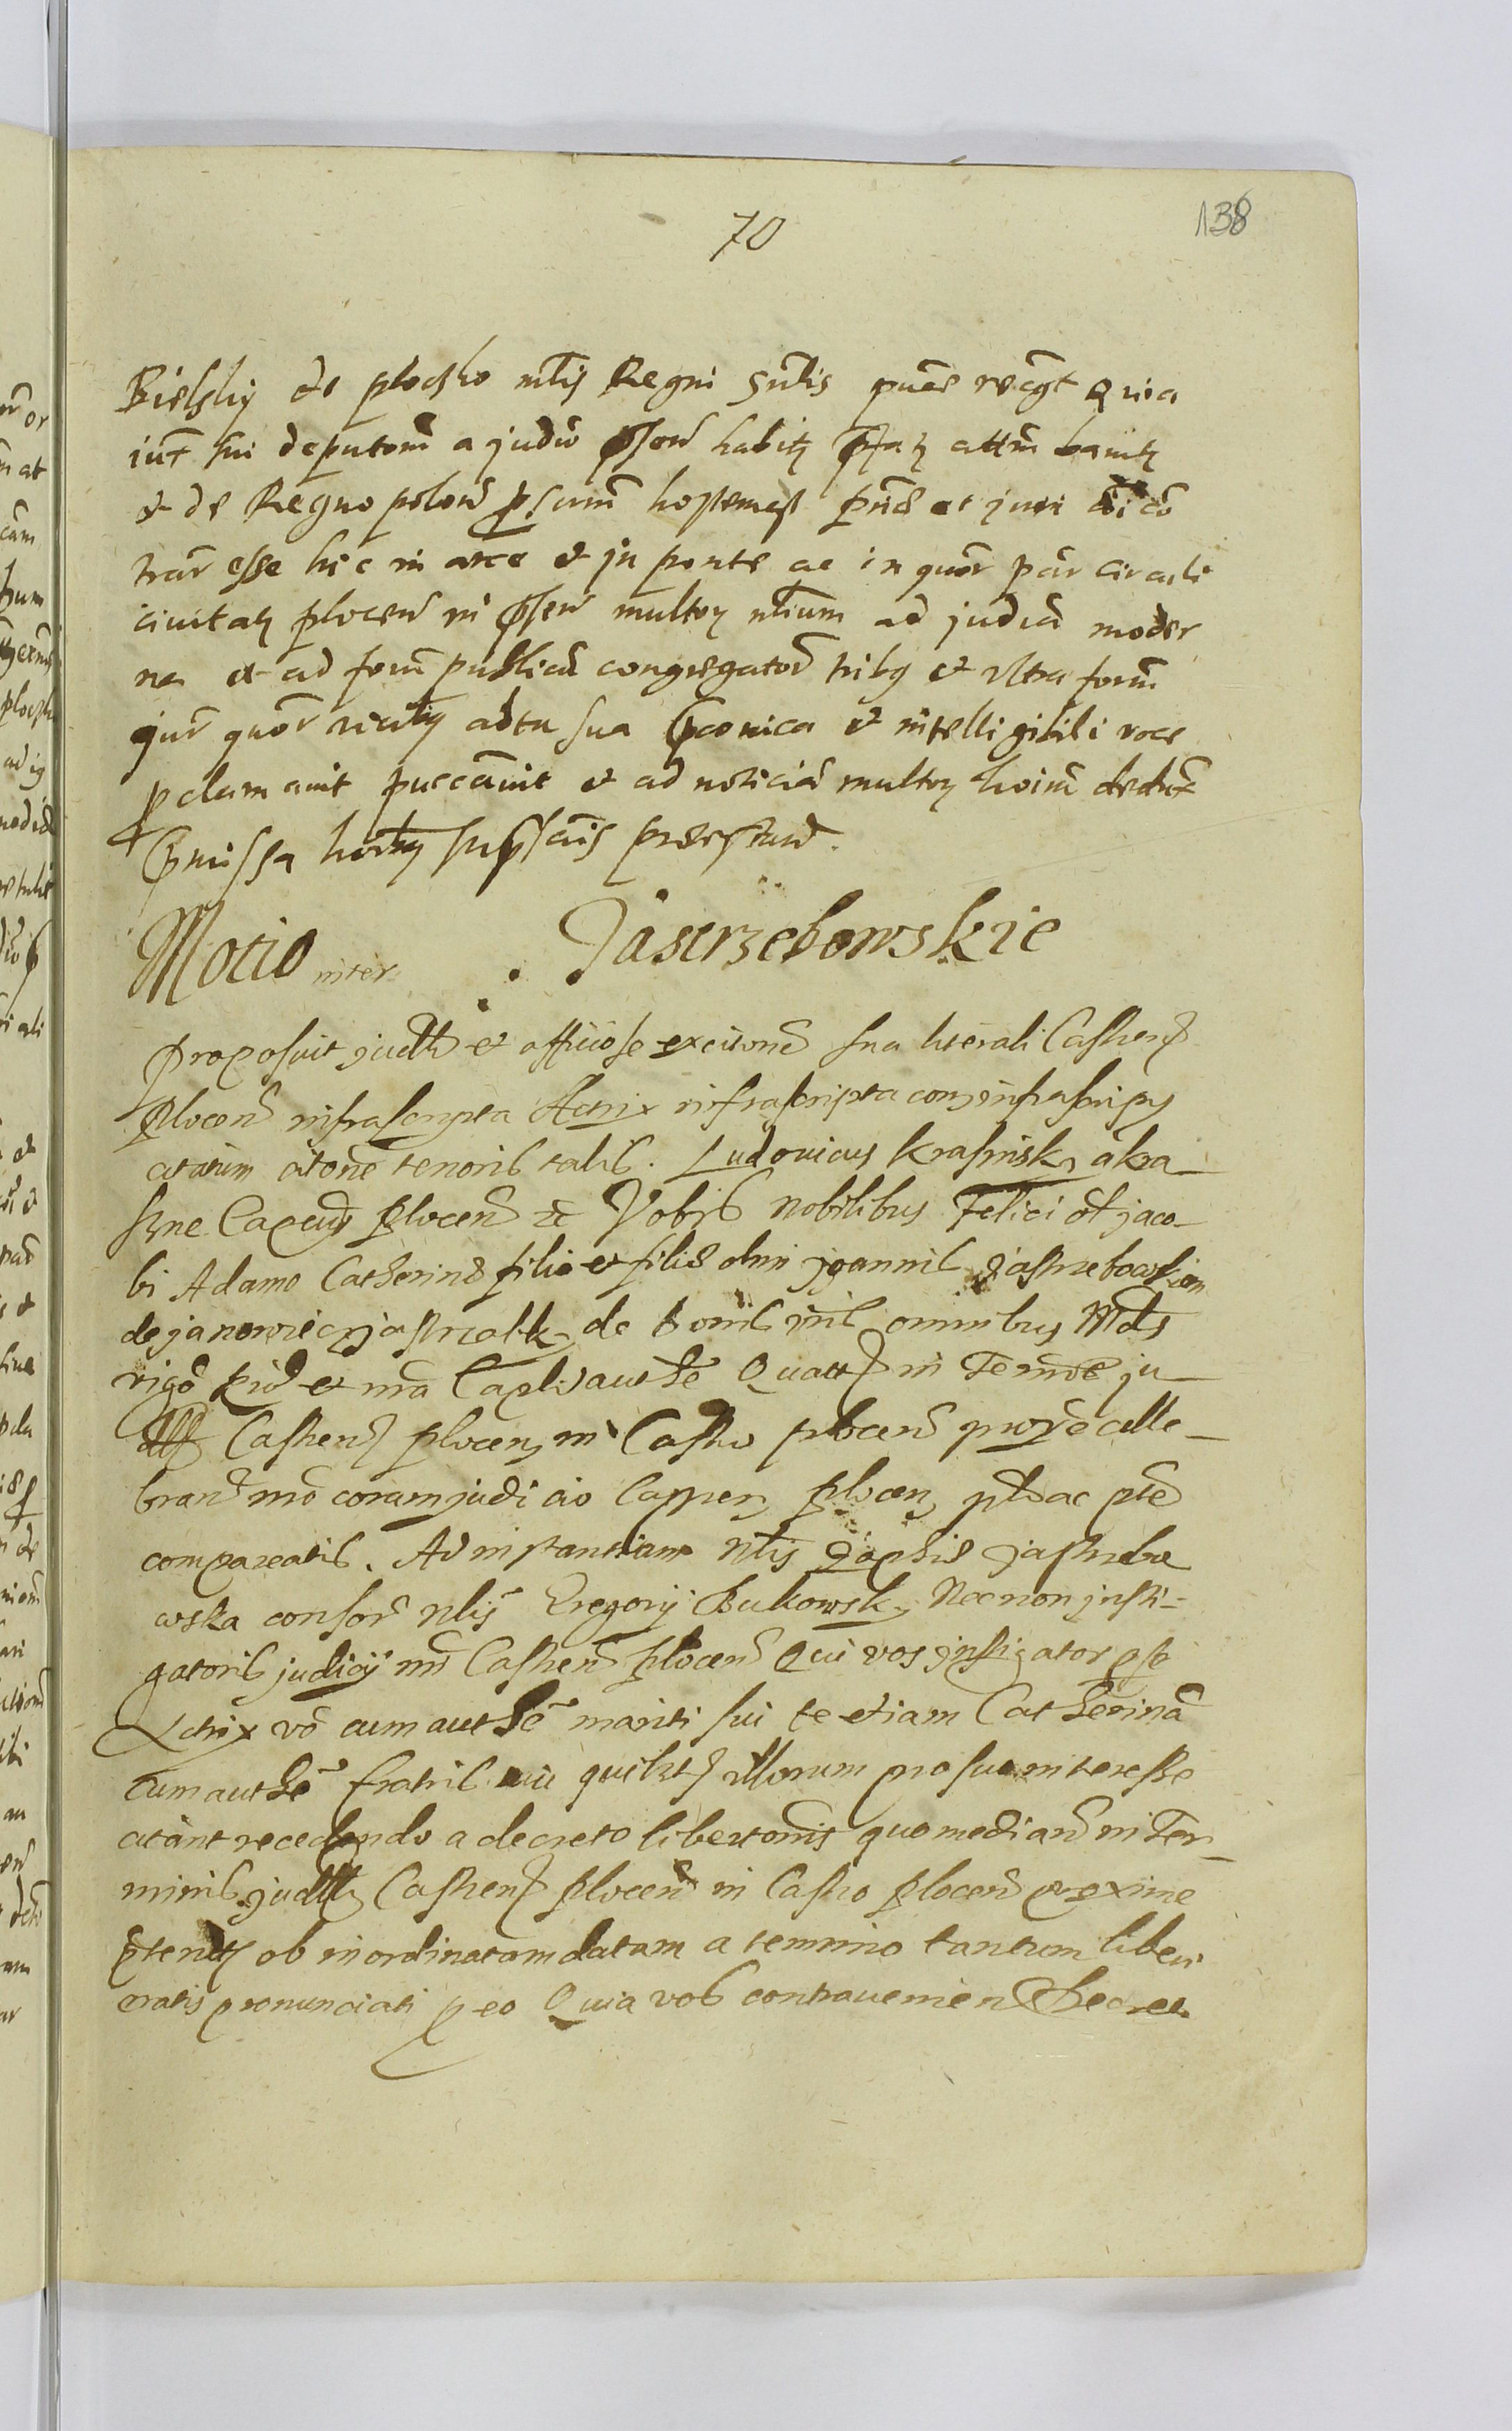 70
138
Bielsky de plocsko nlis Regni gnlis puce recgt Quia
iuxt sui deputom a judio psen habitz pfatz attm banitz
et de Regno polon psum hostemqz pnd et juri coi con
trar esse hic in arce et in ponte ac in quor par circuli
ciuitatz plocen in psen multoz nlium ad judia moder
na et ad forum publicu congregator tribz et vltra forum
jur quor vicibz abta sua pconica et intelligibili voce
pclamauit puccauit et ad noticia multoz hoim deduxt
pmissa horum supscis prestand.
Motio inter Jastrzebowskie
Proposuit judltr et officiose execuone sua literali Castren
Plocen infrascripta Actrix infrascripta con infrascripts
citatum citone tenoris talis. Ludouicus Krasinsk a kra
syne Capeus Plocen etc Vobis nobilibus Felici olt jaco
bi Adamo Catherine filio et filie olim joannis Jastrebowskim
de janowiec jastrzabk de bonis vris omnibus Mds
vigo pnd et ma Capli authe Quatt in Termie ju
dll Castren plocen in Castro plocen prox celle
brand mo coram judicio Cappen plocen plr ac pte
compareatis. Ad instantiam Nlis Zophie jastrebo
wska consor nlis Gregorij Bukowsk Necnon jnsti
gatoris judicij mi Castren plocen Qui vos jnstigator pse
Actrix vo cum authe mariti sui te etiam Catherina
cum authe fratris tui quilzt illorum pro suo interesse
citant recedendo a decreto libertonis quo median in Ter
minis judllz Castren plocen in Castro plocen proxime
ptentz ob inordinatam datam a termino tantum liber
eratis pronunciati p eo Quia vos contrauenien Decret